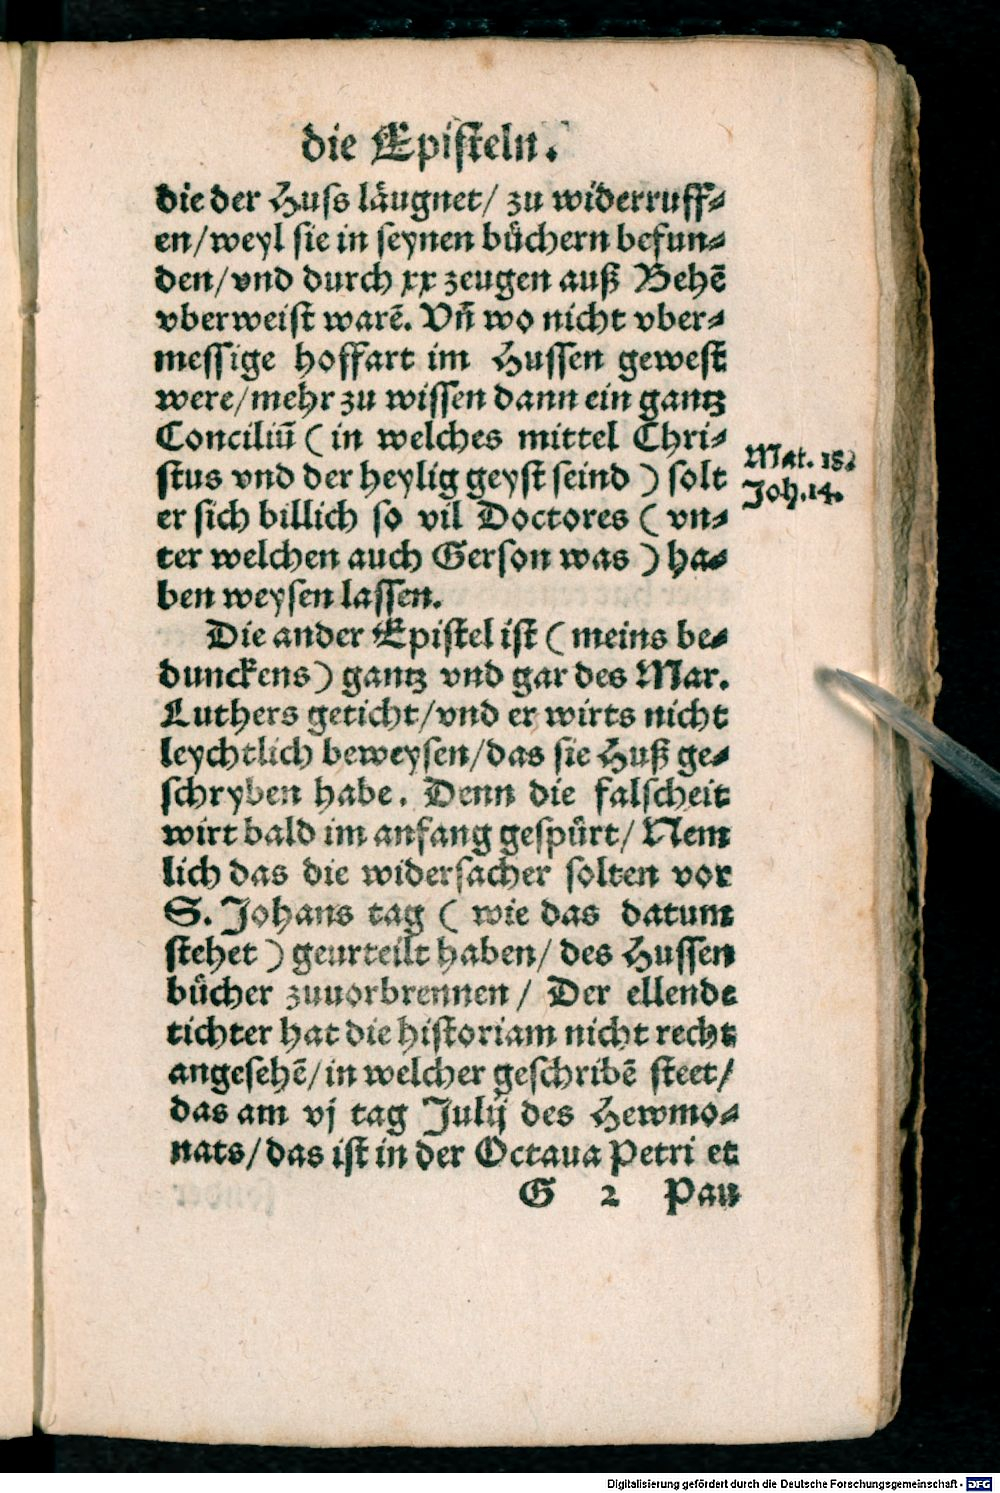 die Episteln.
die der Huss läugnet/ zu widerruff⸗
en/weyl sie in seynen bůchern befun⸗
den/vnd durch xx zeugen auß Behē
vberweist warē. Vñ wo nicht vber⸗
messige hoffart im Hussen gewest
were/mehr zu wissen dann ein gantz
Conciliū ( in welches mittel Chri⸗
stus vnd der heylig geyst seind ) solt
er sich billich so vil Doctores ( vn⸗
ter welchen auch Gerson was ) ha⸗
ben weysen lassen.
Mat. 18.
Joh.14.
Die ander Epistel ist ( meins be⸗
dunckens ) gantz vnd gar des Mar.
Luthers geticht/vnd er wirts nicht
leychtlich beweysen/das sie Huß ge⸗
schryben habe. Denn die falscheit
wirt bald im anfang gespůrt/ Nem
lich das die widersacher solten vor
S. Johans tag ( wie das datum
stehet ) geurteilt haben/ des Hussen
bůcher zuuorbrennen / Der ellende
tichter hat die historiam nicht recht
angesehē/in welcher geschribē steet/
das am vj tag Julij des Hewmo⸗
nats/das ist in der Octaua Petri et
G 2 Pau
Digitalisierung gefördert durch die Deutsche Forschungsgemeinschaft - DFG